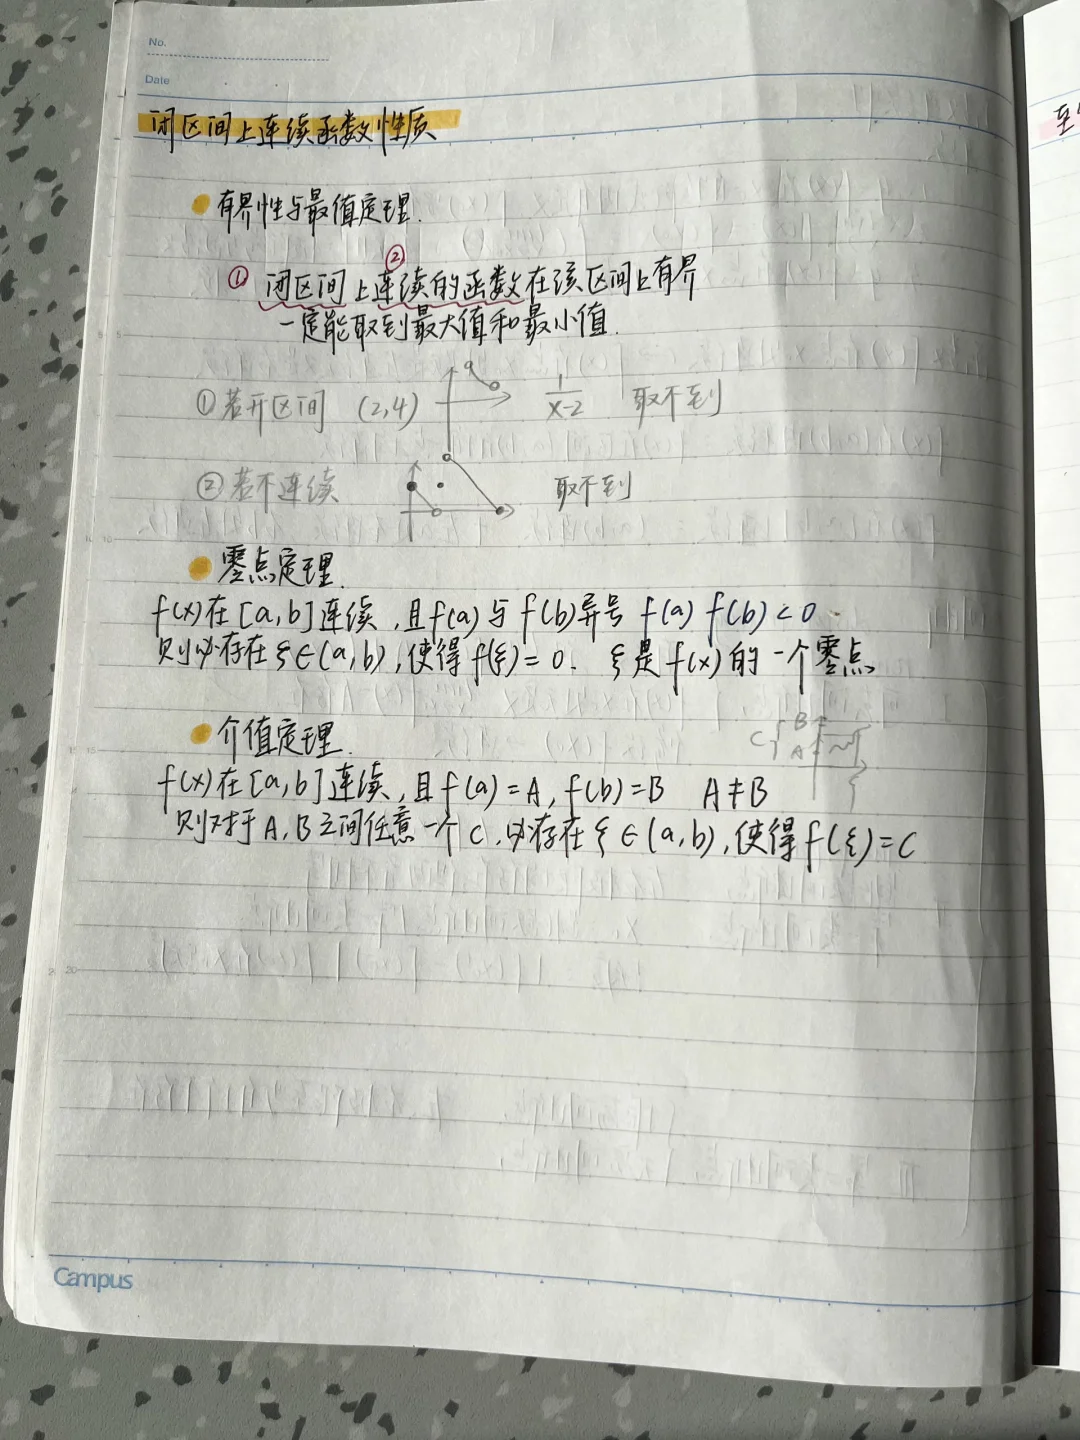 No.
Date
闭区间上连续函数性质
有界性与最值定理.
① ②
闭区间上连续的函数在该区间上有界
一定能取到最大值和最小值.
①若开区间 (2,4) 1/(x-2) 取不到
②若不连续 取不到
零点定理.
f(x)在[a,b]连续,且f(a)与f(b)异号 f(a) f(b)<0
则必存在ξ∈(a,b),使得f(ξ)=0. ξ是f(x)的一个零点
介值定理.
B
C A
f(x)在[a,b]连续,且f(a)=A,f(b)=B A≠B
则对于A,B之间任意一个C,必存在ξ∈(a,b),使得f(ξ)=C
20
Campus